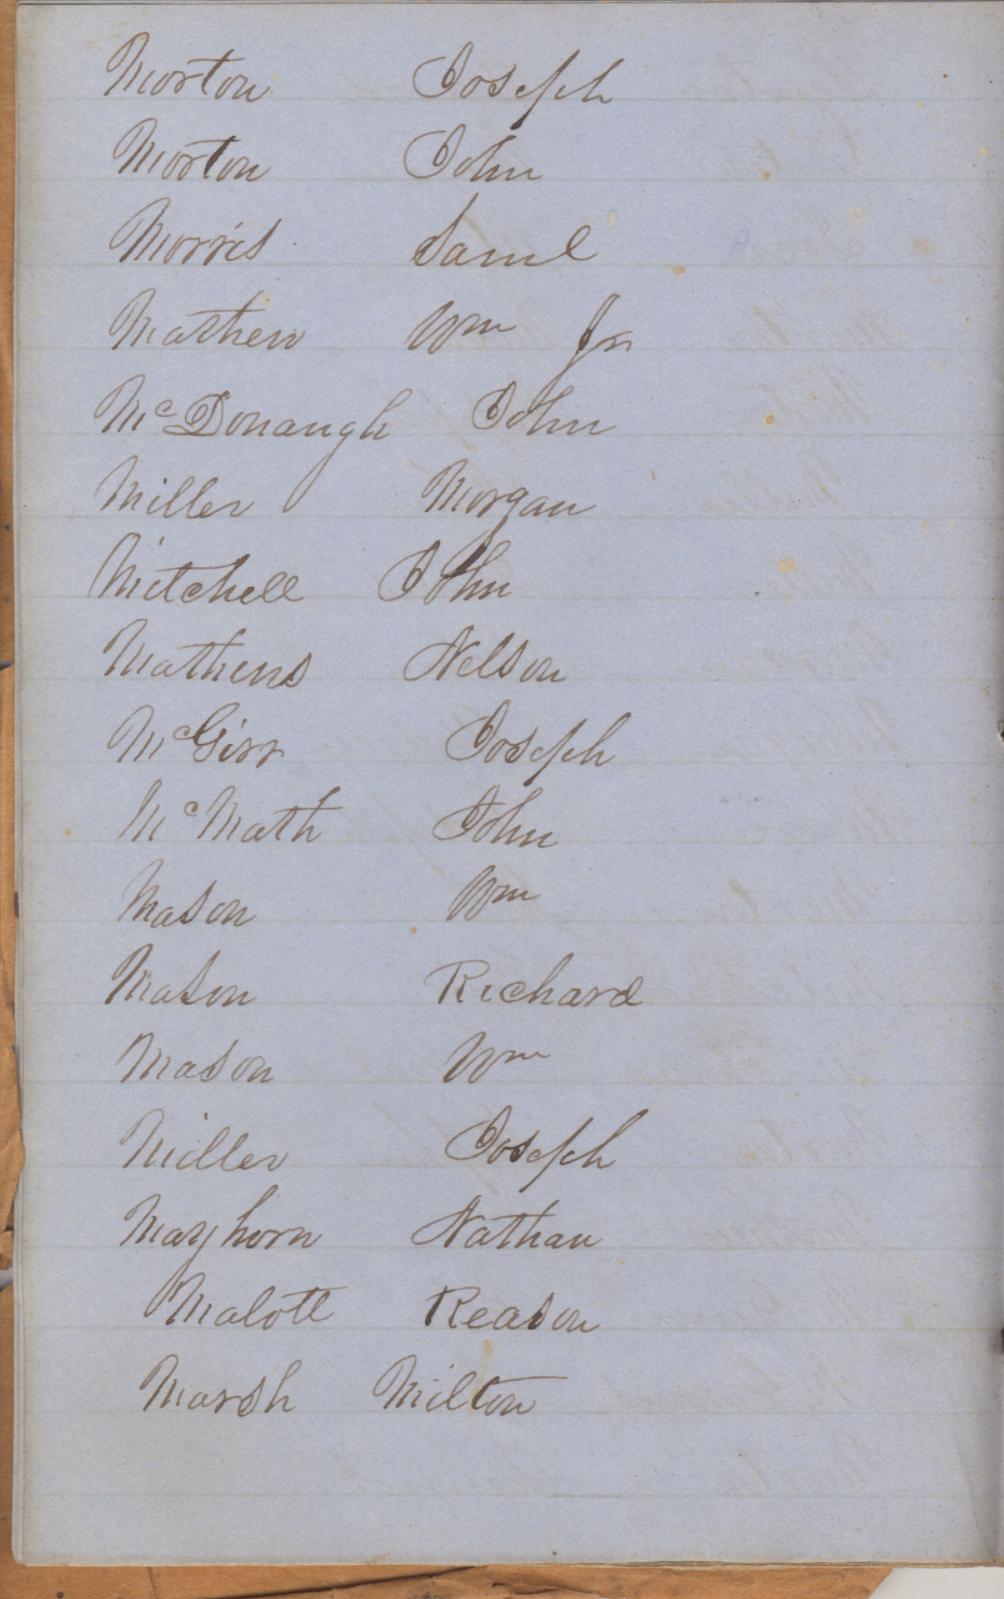 Morton Joseph
Morton John
Morris Saml
Mathew Wm Jr
McDonaugh John
Miller Morgan
Mitchell John
Mathews Nelson
McGirr Joseph
McMath John
Mason Wm
Mason Richard
Mason Wm
Miller Joseph
Mayhorn Nathan
Malott Reason
Marsh Milton